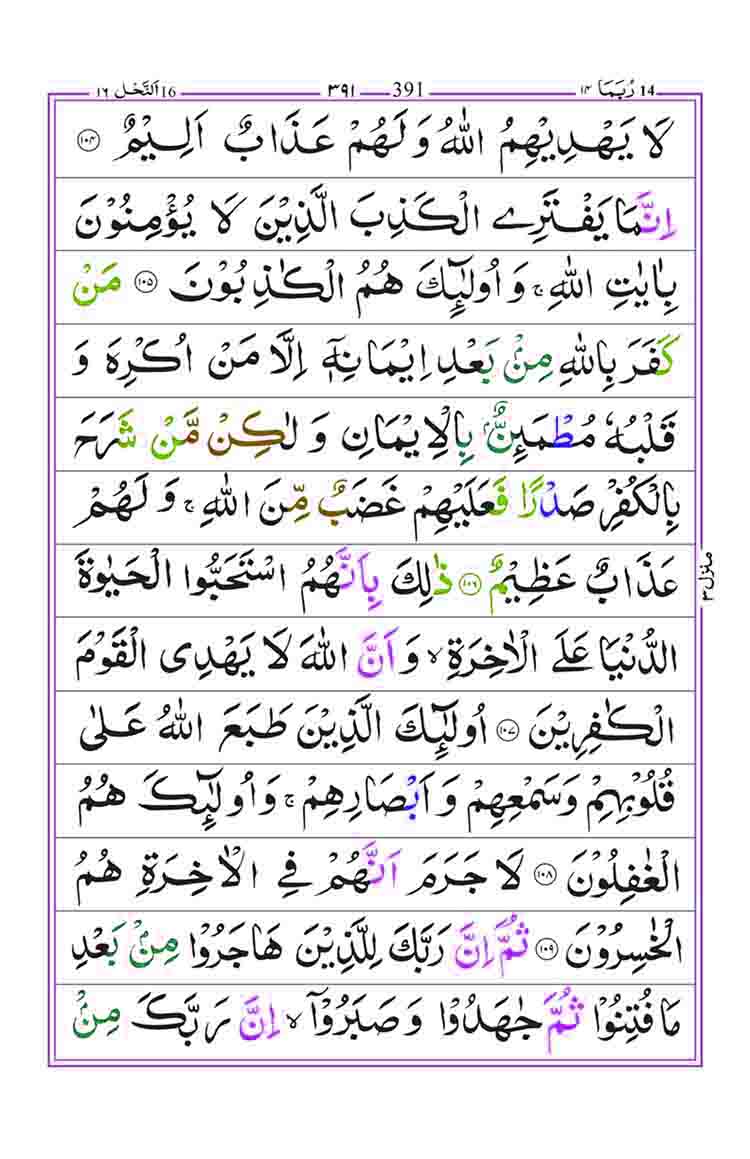 14 رُبَمَا ١٤ 391 ٣٩١ 16 اَلنَّحْل ١٦
لَا يَهْدِيْهِمُ اللّٰهُ وَلَهُمْ عَذَابٌ اَلِيْمٌ ۝١٠٤
اِنَّمَا يَفْتَرِي الْكَذِبَ الَّذِيْنَ لَا يُؤْمِنُوْنَ
بِاٰيٰتِ اللّٰهِ ۚ وَاُولٰٓئِكَ هُمُ الْكٰذِبُوْنَ ۝١٠٥ مَنْ
كَفَرَ بِاللّٰهِ مِنْۢ بَعْدِ اِيْمَانِهٖٓ اِلَّا مَنْ اُكْرِهَ وَ
قَلْبُهٗ مُطْمَئِنٌّۢ بِالْاِيْمَانِ وَلٰكِنْ مَّنْ شَرَحَ
بِالْكُفْرِ صَدْرًا فَعَلَيْهِمْ غَضَبٌ مِّنَ اللّٰهِ ۚ وَلَهُمْ
عَذَابٌ عَظِيْمٌ ۝١٠٦ ذٰلِكَ بِاَنَّهُمُ اسْتَحَبُّوا الْحَيٰوةَ
الدُّنْيَا عَلَى الْاٰخِرَةِ ۙ وَاَنَّ اللّٰهَ لَا يَهْدِى الْقَوْمَ
الْكٰفِرِيْنَ ۝١٠٧ اُولٰٓئِكَ الَّذِيْنَ طَبَعَ اللّٰهُ عَلٰى
قُلُوْبِهِمْ وَسَمْعِهِمْ وَاَبْصَارِهِمْ ۚ وَاُولٰٓئِكَ هُمُ
الْغٰفِلُوْنَ ۝١٠٨ لَا جَرَمَ اَنَّهُمْ فِي الْاٰخِرَةِ هُمُ
الْخٰسِرُوْنَ ۝١٠٩ ثُمَّ اِنَّ رَبَّكَ لِلَّذِيْنَ هَاجَرُوْا مِنْۢ بَعْدِ
مَا فُتِنُوْا ثُمَّ جٰهَدُوْا وَصَبَرُوْٓا ۙ اِنَّ رَبَّكَ مِنْۢ
منزل ٣